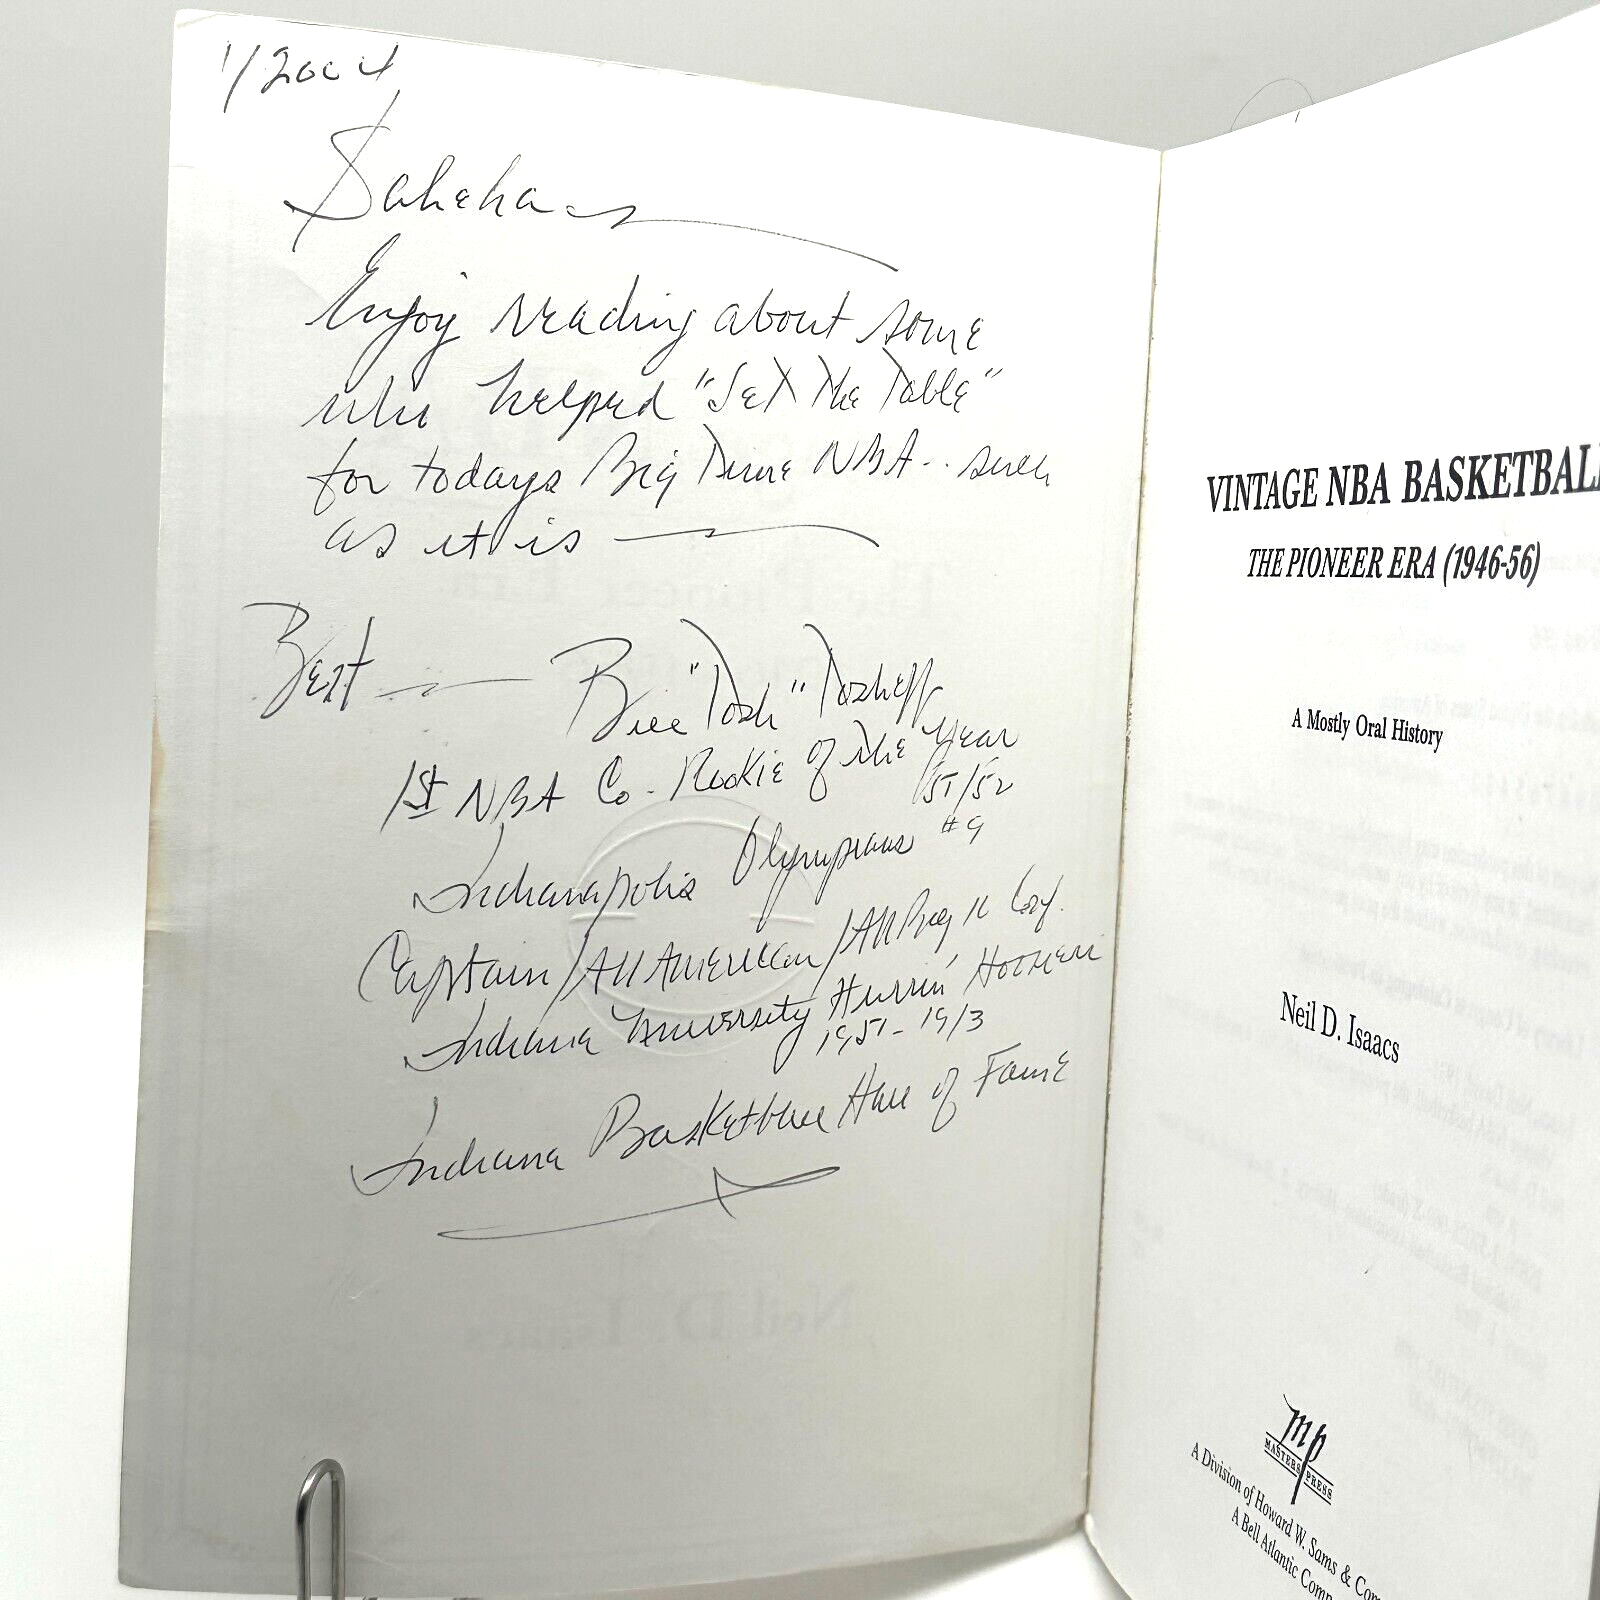 1/2004
Enjoy reading about some
who helped "Set The Table"
for todays Big Time NBA -- such
as it is
Best
Bill "Tosh" Tosheff
1st NBA Co- Rookie of the Year
'51/'52
Indianapolis Olympians #9
Captain/All American/All Big 10
Indiana University Hurrin' Hoosiers
1951 -
Indiana Basketball Hall of Fame
VINTAGE NBA BASKETBALL
THE PIONEER ERA (1946-56)
A Mostly Oral History
Neil D. Isaacs
mp
MASTERS PRESS
A Division of Howard W. Sams & Com
A Bell Atlantic Comp